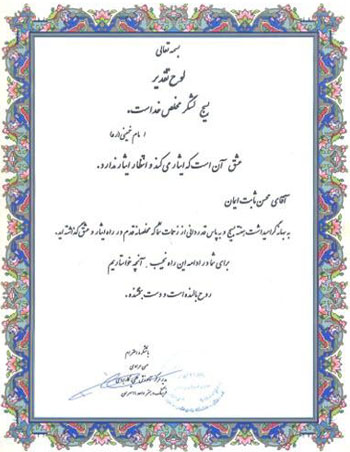 بسمه تعالی
لوح تقدیر
بسیج لشکر مخلص خداست.
امام خمینی (ره)
عشق آن است که ایثار می کند و انتظار ایثار ندارد.
آقای محسن ثابت ایمان
به بهانه گرامیداشت هفته بسیج و به پاس قدردانی از زحمات شما که مخلصانه قدم در راه ایثار و عشق گذاشته اید.
برای شما در ادامه این راه نجیب، آنچه خواستاریم
روح بالنده است و دست بخشنده.
با تشکر و احترام